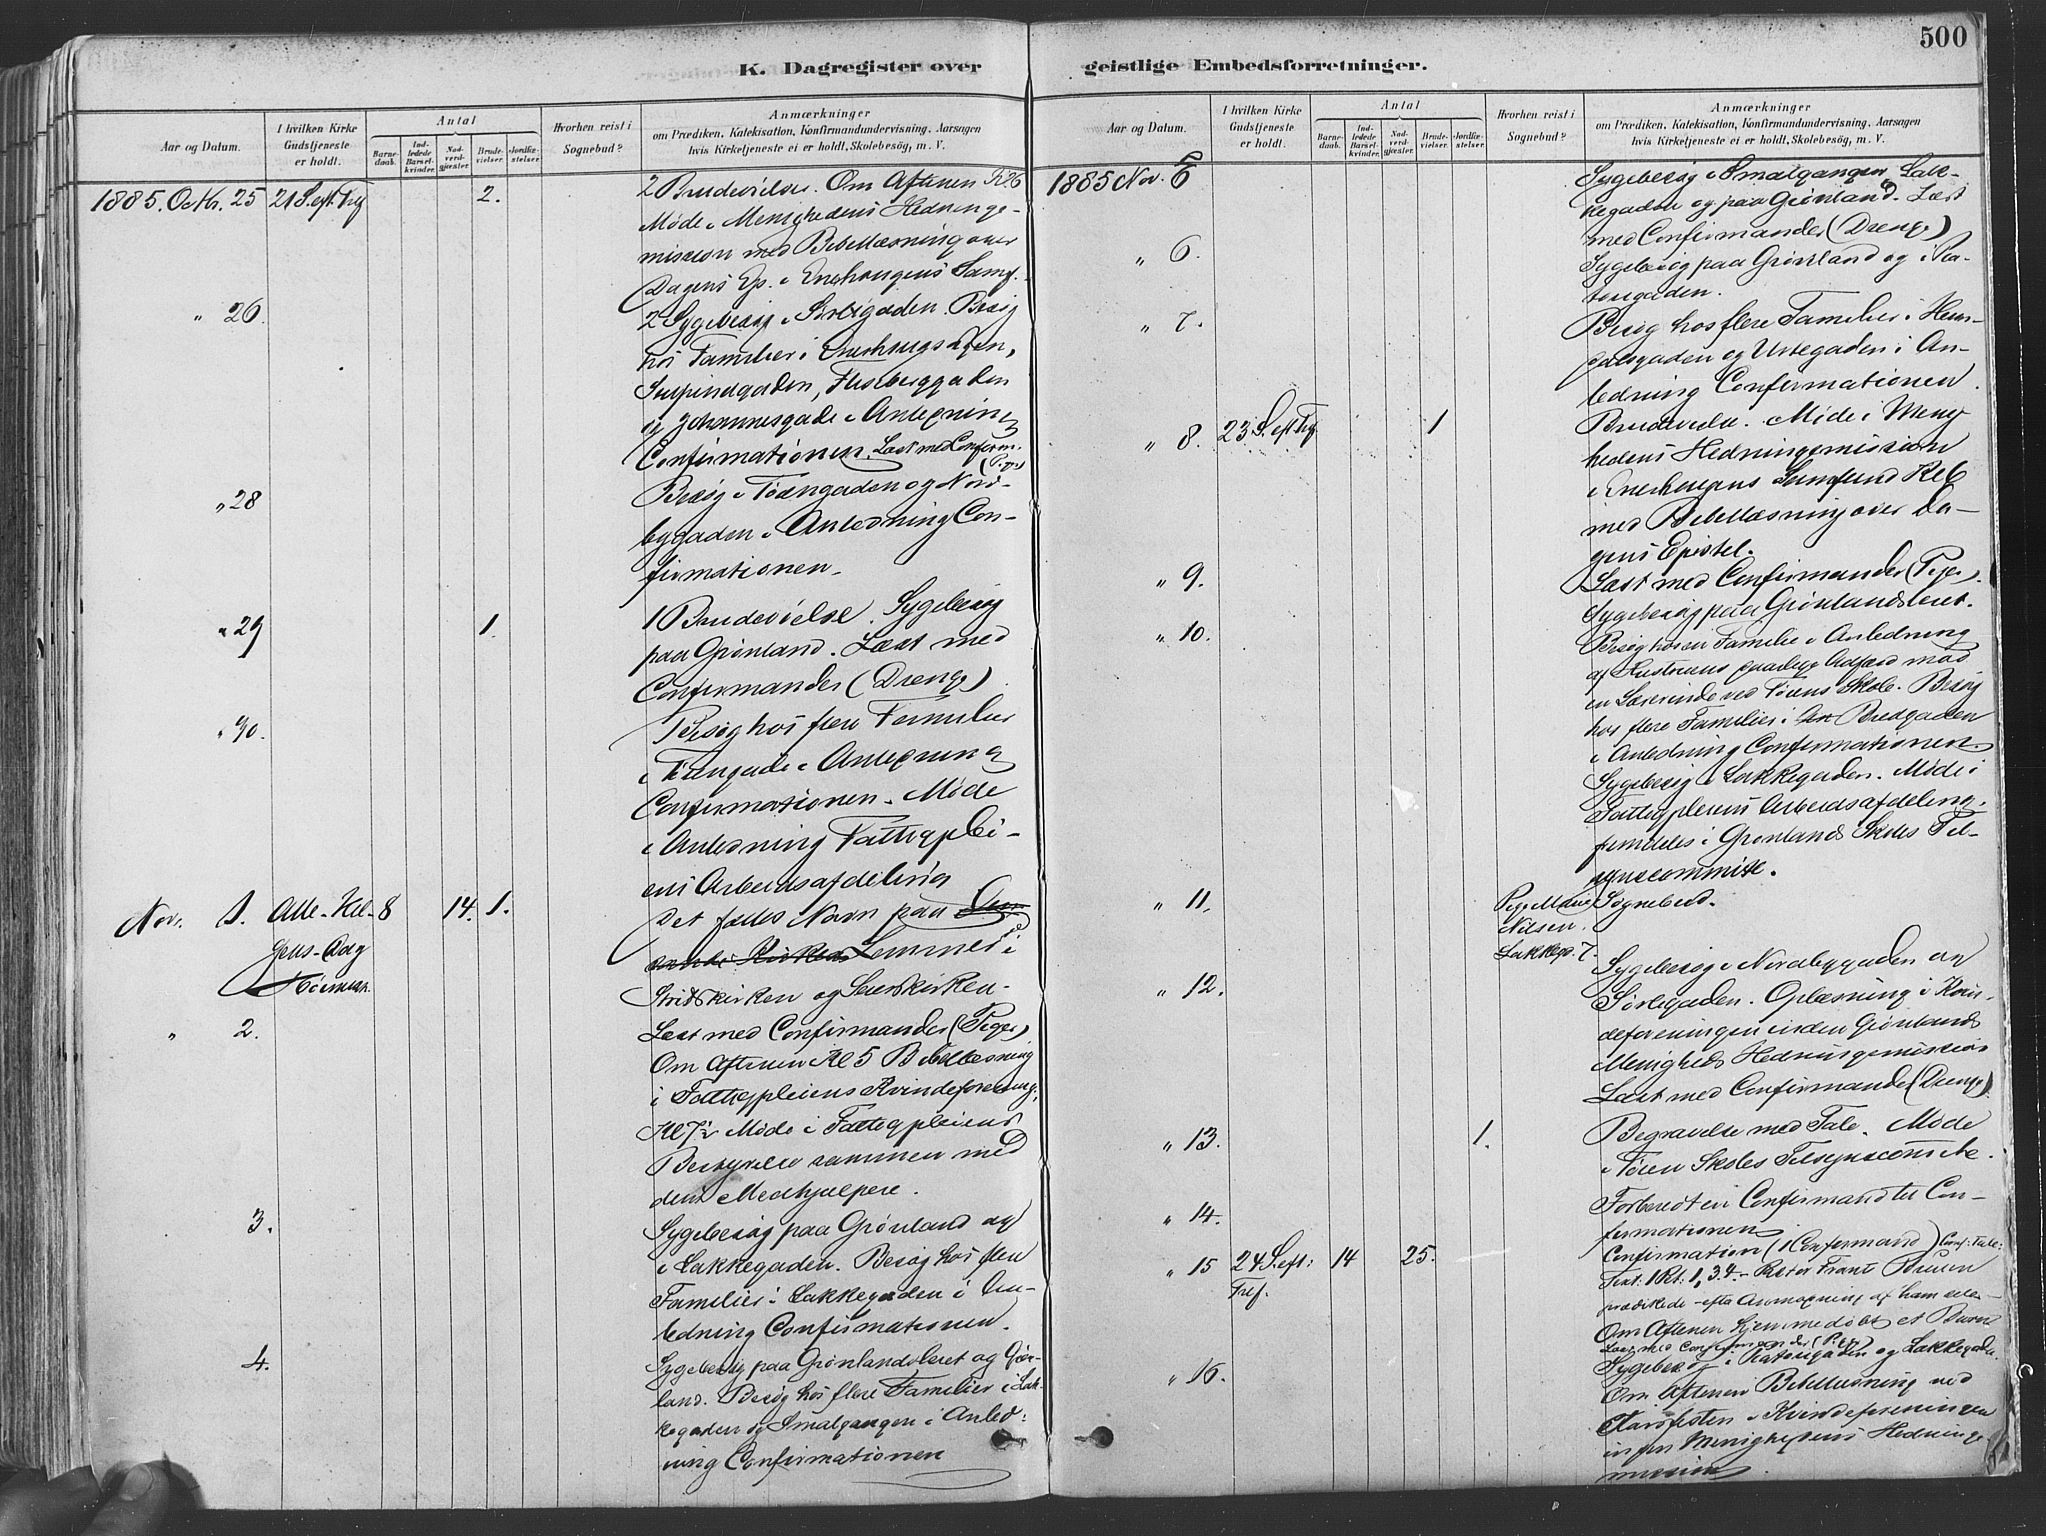 500
K. Dagregister over geistlige Embedsforretninger.
Aar og Datum.
I hvilken Kirke Gudstjeneste er holdt.
Antal
Barnedaab.
Indledede Barselkvinder.
Nadverdgjæster.
Brudevielser.
Jordfæstelser.
Hvorhen reist i Sognebud?
Anmærkninger
om Prædiken, Katekisation, Konfirmandundervisning, Aarsagen
hvis Kirketjeneste ei er holdt, Skolebesøg, m. V.
1885. Octbr. 25 21 S. eft. Tref 2.
2 Brudevielser. Om Aftenen Kl 6
Møde i Menighedens Hedninge-
mission med Bibellæsning over
Dagens Ep. i Enerhaugens Samf.
" 26.
2 Sygebesøg i Sørligaden. Besøg
hos Familier i Enerhaugsgaden,
Stupinsgaden, Flisberggaden
og Johannesgade i Anledning
Confirmationen. Læst med Confirm.
(Piger)
" 28
Besøg i Tøiengaden og Nord-
bygaden i Anledning Con-
firmationen.
" 29 1.
1 Brudevielse. Sygebesøg
paa Grønland. Læst med
Confirmander (Drenge)
" 30.
Besøg hos flere Familier
i Tøiengade i Anledning
Confirmationen. Møde
i Anledning Fattigplei-
ens Arbeidsafdeling
Nov. 1. Alle-Hel- 8 14. 1.
gens-Dag
Høimesse.
Det fælles Navn paa
Lemmer i
Stridskirken og Seierskirken.
" 2.
Læst med Confirmander (Piger)
Om Aftenen Kl 5 Bibellæsning
i Fattigpleiens Kvindeforening,
Kl 7½ Møde i Fattigpleiens
Bestyrelse sammen med
dens Medhjælpere.
3.
Sygebesøg paa Grønland og
i Lakkegaden. Besøg hos flere
Familier i Lakkegaden i An-
ledning Confirmationen.
4.
Sygebesøg paa Grønlandsleret og Grøn-
land. Besøg hos flere Familier i Lak-
kegaden og Smalgangen i Anled-
ning Confirmationen
Aar og Datum.
I hvilken Kirke Gudstjeneste er holdt.
Antal
Barnedaab.
Indledede Barselkvinder.
Nadverdgjæster.
Brudevielser.
Jordfæstelser.
Hvorhen reist i Sognebud?
Anmærkninger
om Prædiken, Katekisation, Konfirmandundervisning, Aarsagen
hvis Kirketjeneste ei er holdt, Skolebesøg, m. V.
1885 Nov. 5
Sygebesøg i Smalgangen, Lak-
kegaden og paa Grønland. Læst
med Confirmander (Drenge)
" 6.
Sygebesøg paa Grønland og i Pla-
tousgaden.
" 7.
Besøg hos flere Familier i Heim-
dalsgaden og Urtegaden i An-
ledning Confirmationen.
" 8. 23 S. eft Tref 1
Brudevielse. Møde i Menig-
hedens Hedningemission
i Enerhaugens Samfund Kl 6
med Bibellæsning over Da-
gens Epistel.
" 9.
Læst med Confirmander (Piger).
Sygebesøg paa Grønlandsleret.
" 10.
Besøg hos en Familie i Anledning
af Hustruens Adfærd mod
en Lærerinde ved Tøiens Skole. Besøg
hos flere Familier i Bredgaden
i Anledning Confirmationen.
Sygebesøg i Lakkegaden. Møde i
Fattigpleiens Arbeidsafdeling,
fremdeles i Grønlands Skoles Til-
synscommitte.
" 11. Pige Marie
Nilsen.
Lakkeg. 7.
Sognebud.
" 12.
Sygebesøg i Nordbygaden og
Sørligaden. Oplæsning i Kvin-
deforeningen inden Grønlands
Menigheds Hedningemission
Læst med Confirmander (Drenge)
" 13. 1.
Begravelse med Tale. Møde
i Tøien Skoles Tilsynscomite.
" 14.
Forberedt en Confirmand til Con-
firmationen
" 15 24 S. eft: 14 25.
Tref.
Confirmation (1 Confirmand) Conf: Tale:
Text: 1 Pet: 1, 3.4. - Rector Frantz Bruun
prædikede efter Anmodning af ham selv
Om Aftenen hjemmedøbt et Barn
" 16.
Læst med Confirmander (Piger)
Sygebesøg i Platousgaden og Lakkegaden.
Om Aftenen Bibellæsning ved
Aarsfesten i Kvindeforeningen
inden Menighedens Hedninge-
mission.